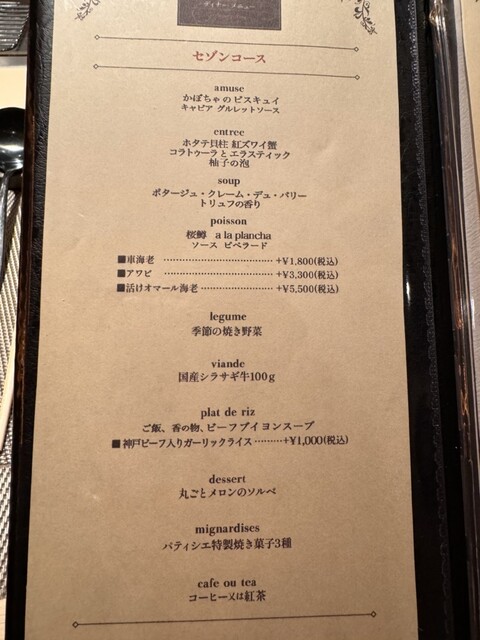 ディナーメニュー
セゾンコース
amuse
かぼちゃのビスキュイ
キャビア グルレットソース
entree
ホタテ貝柱 紅ズワイ蟹
コラトゥーラとエラスティック
柚子の泡
soup
ポタージュ・クレーム・デュ・バリー
トリュフの香り
poisson
桜鱒 a la plancha
ソース ピペラード
■車海老 ………………………………+¥1,800(税込)
■アワビ ………………………………+¥3,300(税込)
■活けオマール海老……………………+¥5,500(税込)
legume
季節の焼き野菜
viande
国産シラサギ牛100g
plat de riz
ご飯、香の物、ビーフブイヨンスープ
■神戸ビーフ入りガーリックライス………+¥1,000(税込)
dessert
丸ごとメロンのソルベ
mignardises
パティシエ特製焼き菓子3種
cafe ou tea
コーヒー又は紅茶